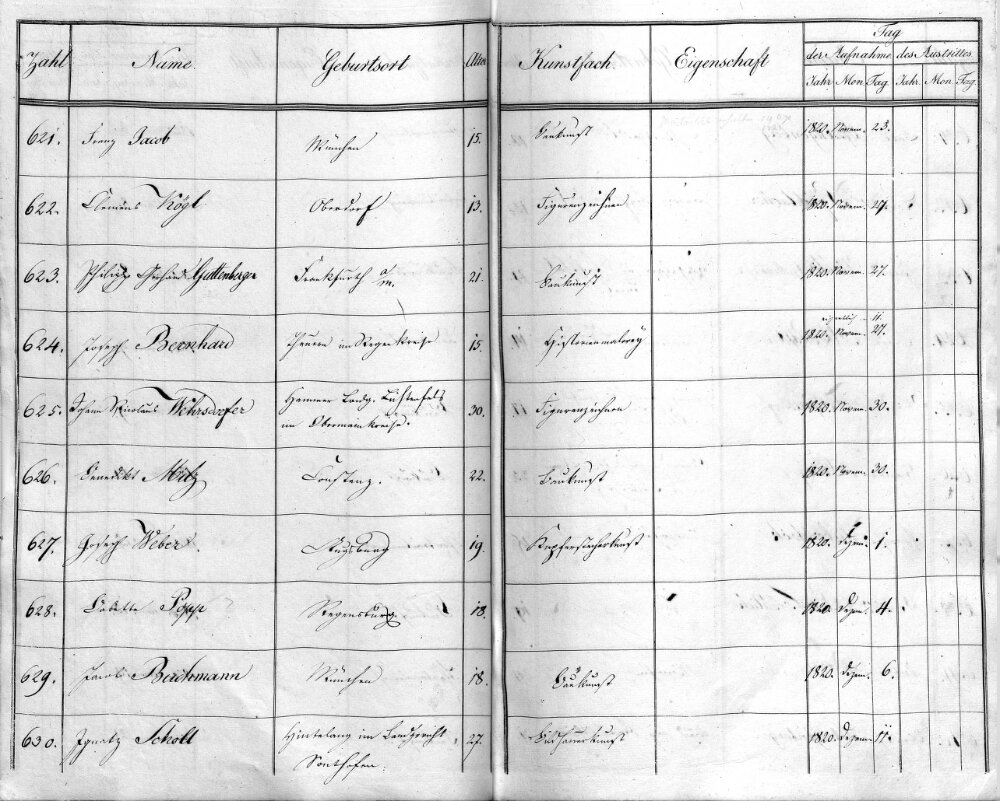 Tag
Zahl Name Geburtsort Alter Kunstfach Eigenschaft der Aufnahme des Austrittes
Jahr Mon Tag Jahr Mon Tag
621. Franz Jacob München 15. Baukunst 1820. Novem. 23.
622. Clemens Kögl Oberdorf 13. Figurenzeichnen 1820. Novem. 27.
623. Philipp Guttenberger Frankfurth a/m. 21. Baukunst 1820. Novem. 27.
11.
624. Joseph Bernhard im Regenkreise 15. Historienmalerey 1820. Novem. 27.
625. Johann Nicolaus Wehrsdorfer Landg. Lichtenfels 30. Figurenzeichnen 1820. Novem. 30.
im Obermainkreise.
626. Benedikt Constanz. 22. Baukunst 1820. Novem. 30.
627. Joseph Weber. Augsburg 19. Kupferstecherkunst 1820. Dezem. 1.
628. Babette Popp Regensburg. 18. 1820. Dezem. 4.
629. Jacob Bachmann München 18. Baukunst 1820. Dezem. 6.
630. Ignatz Schott Hintelang im Landgericht 27. Bildhauerkunst 1820. Dezem. 11.
Sonthofen.